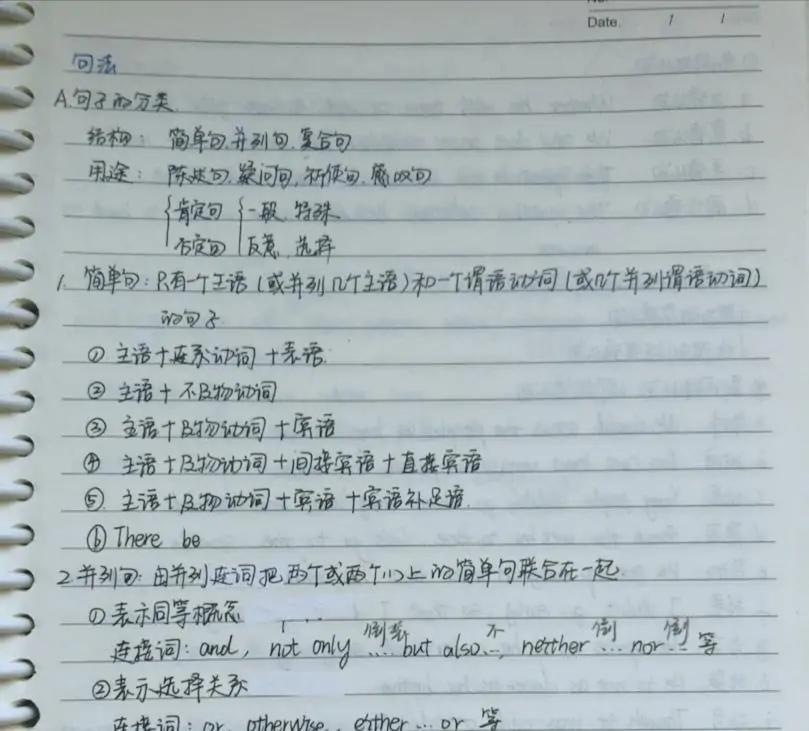 No.
Date. / /
句法
A.句子的分类.
结构： 简单句.并列句.复合句
用途： 陈述句.疑问句,祈使句.感叹句
肯定句 一般. 特殊
否定句 反意. 选择
1. 简单句：只有一个主语（或并列几个主语）和一个谓语动词（或几个并列谓语动词）
的句子
① 主语+连系动词+表语.
② 主语+不及物动词
③ 主语+及物动词+宾语
④ 主语+及物动词+间接宾语+直接宾语
⑤ 主语+及物动词+宾语+宾语补足语.
⑥ There be
2.并列句：由并列连词把两个或两个以上的简单句联合在一起.
①表示同等概念
倒装 不 倒 倒
连接词：and, not only ....but also..., neither ... nor ... 等
②表示选择关系
连接词：or, otherwise, either ... or 等